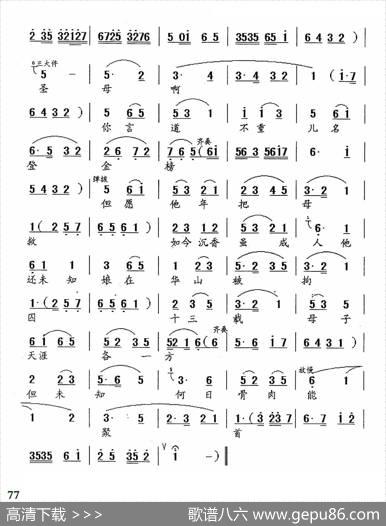 2 35 32127 | 6725 3276 | 5 0 i | 6 5 | 3535 65 i | 6432 )
三大件
5 - | 5· 2 | 3· 4 | 3· 4 3 2 | 1 ( i·7
圣 母 啊
6 4 3 2 ) | 5 6 5 | 3 5 | i i 3 | 5 6 i
你 言 道 不 重 儿 名
齐奏
6· 5 3 2 | 2 6 7 2 | 7 6 5 ( 6 i | 56 3 56 i7
登 金 榜
弹拨
5 4 3 2 ) | 5 6 i | 6 5 | 2 3 4 5 | 3· 2 1
但 愿 他 年 把 母
1 ( 2 5 7 | 6 5 6 1 ) | 3 5 | 1 2 3 | 6·
救 如今 沉香 虽 成 人 他
1 2 3 5 | 3 6 5 | 1 2 3 | 5· 2 3 2 | 3· 2 1
还 未 知 娘 在 华 山 被 拘
1· ( 2 5 7 | 6 5 6 1 ) | 5 3 5 | 2 3 4 3 | 3· 2 1
囚 十 三 载 母 子
齐奏
6 i 6 5 | 6 5 3 5 | 52 1 6 ( 6 i | 5· 6 i 7
天 涯 各 一 方
放慢
2 2 3 | 5· 6 5 | 3· 2 | 1 2 3 5 2 | 6 1
但 未 知 何 日 骨 肉 能
1 2 | 3· 5 | 2 3 2 1 | 1· ( 3 2 3 2 7 | 6·7 i 2
聚 首
3535 6 i | i 2 35 32 | i - ) ‖
77
高清下载 >>>
歌谱八六 www.gepu86.com